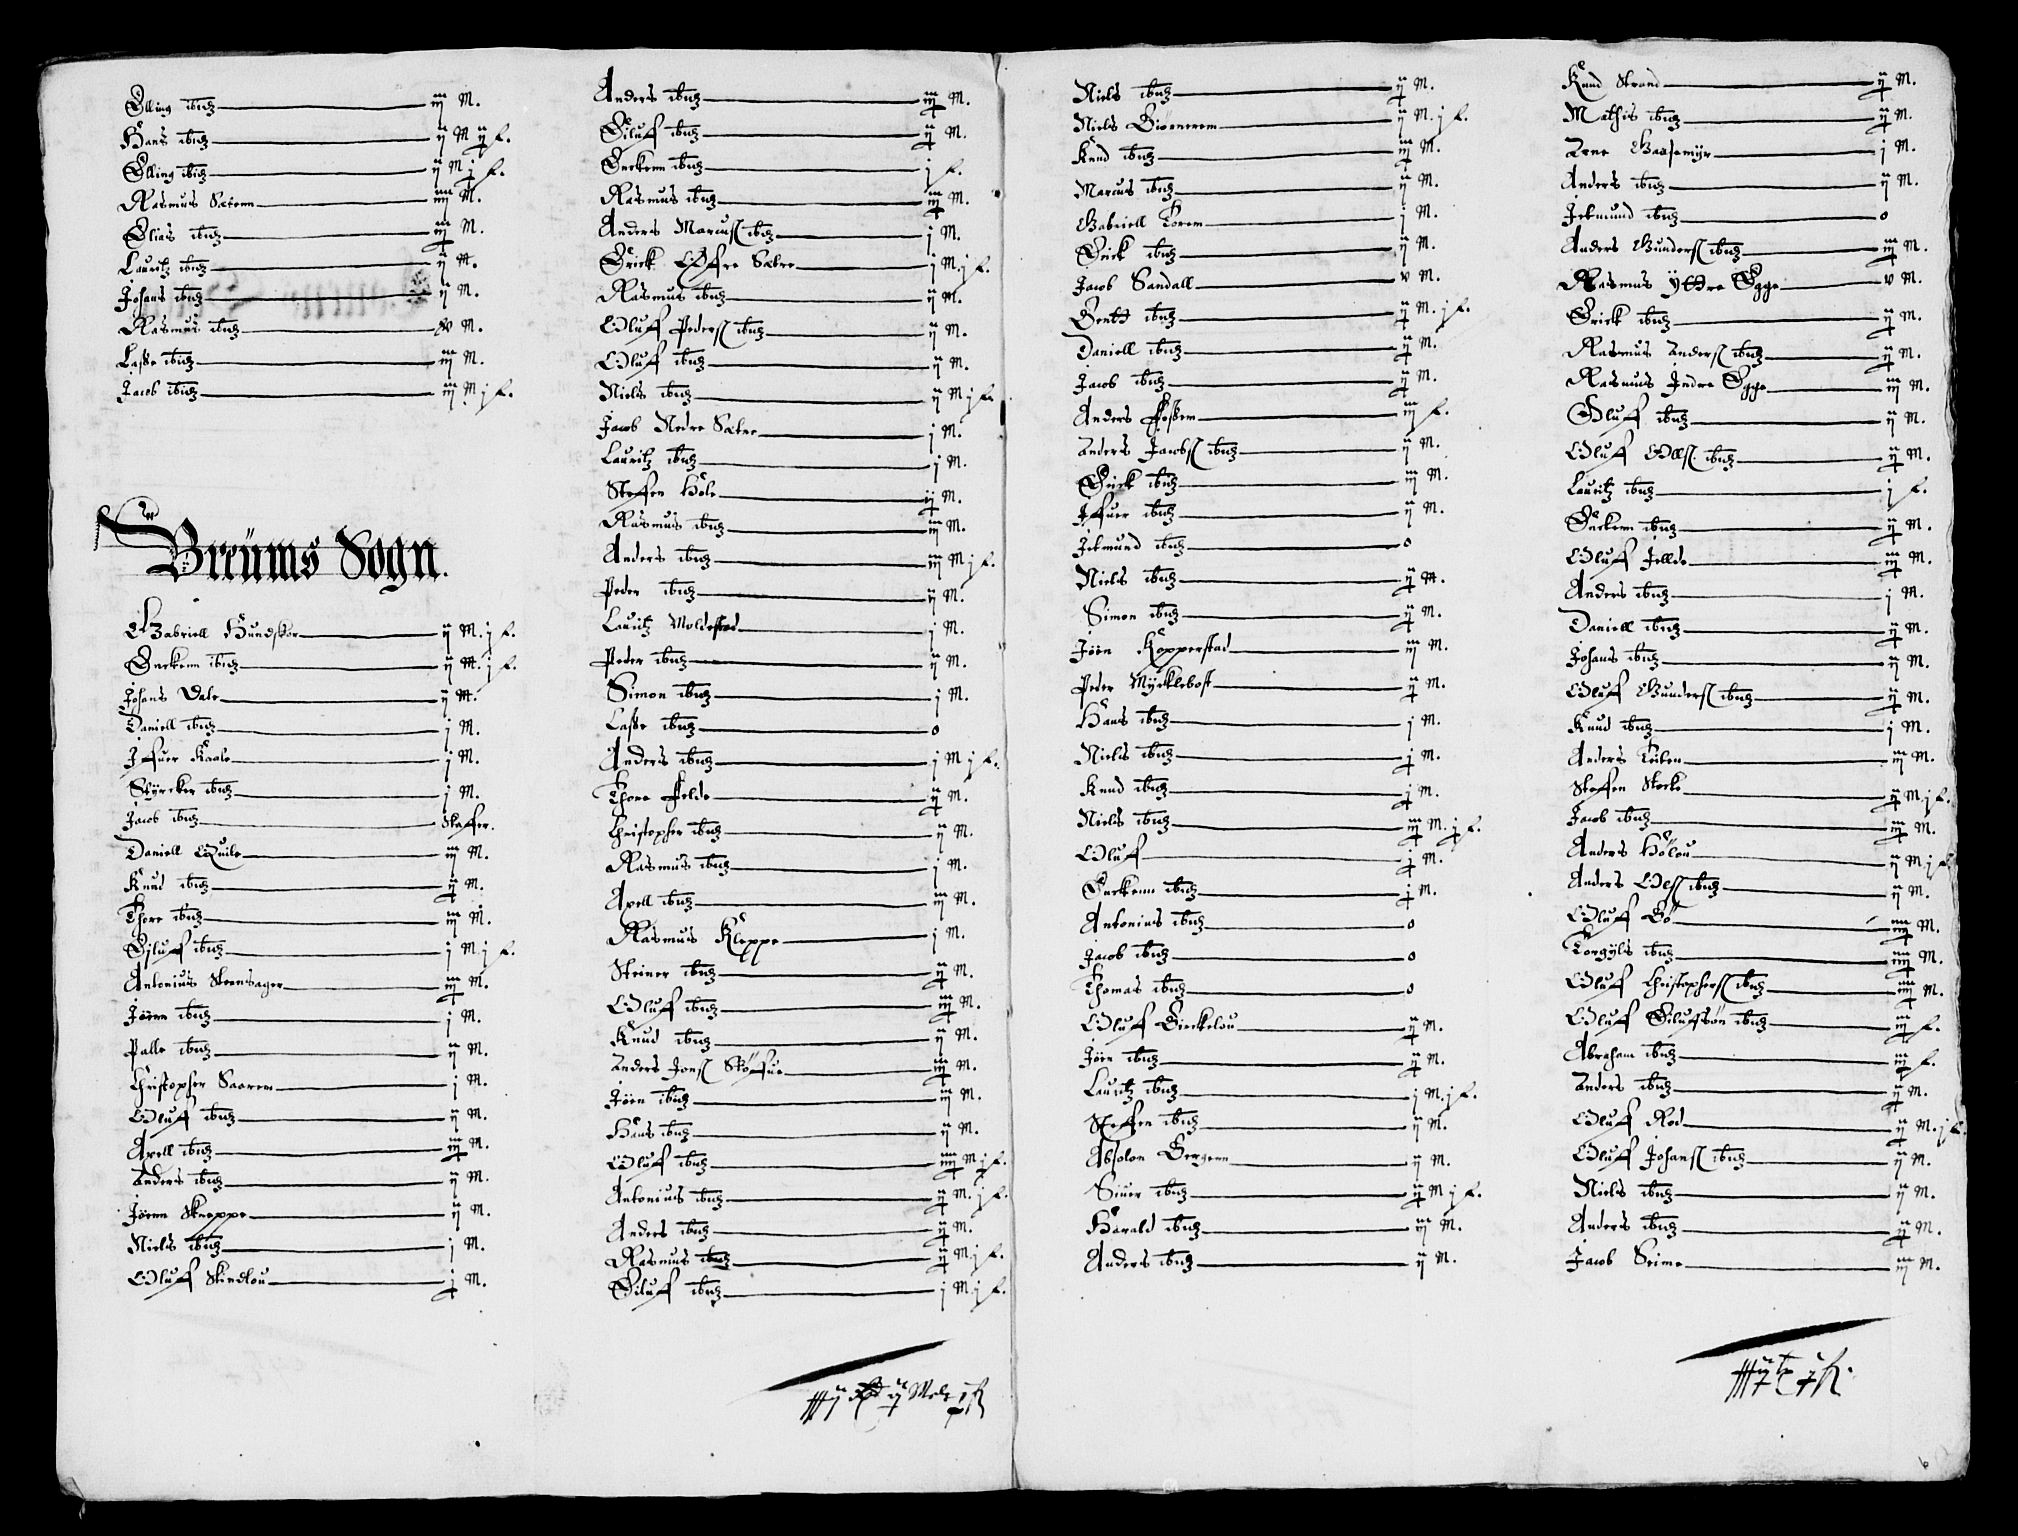 Elling ibid iij M.
Hans ibid ij M ij f.
Elling ibid ij M j f.
Rasmus Sætenn iiij M.
Elias ibid iij M.
Lauritz ibid ij M.
Johans ibid ij M.
Rasmus ibid v M.
Lasse ibid iij M.
Jacob ibid iij M j f.
Breüms Sogn.
Gabriell Hundskor ij M. j f.
Enckenn ibid ij M. j f.
Johans Dale ij M.
Daniell ibid j M.
Iffuer Kaale j M.
Styrcker ibid j M.
Jacob ibid Skaffer.
Daniell Quile iij M.
Knud ibid ij M.
Thore ibid iij M.
Eiluff ibid j M. j f.
Antonius Steensager iij M.
Jørenn ibid j M.
Palle ibid ij M.
Christopher Saarem j M.
Oluff ibid ij M.
Axell ibid iij M.
Anders ibid ij M.
Jørenn Skreppe ij M.
Niels ibid j M.
Oluff Skindlou j M.
Anders ibid iij M.
Eiluff ibid ij M.
Enckenn ibid j f.
Rasmus ibid iij M.
Anders Marcuss ibid j M.
Erick Øffre Sætre j M. j f.
Rasmus ibid ij M.
Oluff Peders ibid ij M.
Oluff ibid ij M.
Niels ibid ij M j f.
Jacob Nedre Sætre j M.
Lauritz ibid j M.
Steffen Hole ij M.
Rasmus ibid iij M.
Anders ibid iij M j f.
Peder ibid ij M.
Lauritz Moldestad j M.
Peder ibid ij M.
Simon ibid j M.
Lasse ibid o
Anders ibid j M j f.
Thore Felde ij M.
Christopher ibid ij M.
Rasmus ibid j M.
Axell ibid iij M.
Rasmus Kleppe j M.
Steiner ibid ij M.
Oluff ibid iij M.
Knud ibid ij M.
Anders Jons Støffue iij M.
Jøen ibid iij M.
Hans ibid ij M.
Oluff ibid iiij M j f.
Antonius ibid ij M. j f.
Anders ibid ij M.
Rasmus ibid ij M. j f.
Eiluff ibid j M. j f.
Niels ibid ij M.
Niels Biørnerem ij M. j f.
Knud ibid iij M.
Marcus ibid ij M.
Gabriell Lorem j M.
Erick ibid ij M.
Jacob Sandall v M.
Bentt ibid ij M. j f.
Daniell ibid ij M.
Jacob ibid ij M.
Anders Fossem iij f.
Anders Jacobs ibid ij M.
Erick ibid iij M.
Iffuer ibid ij M.
Jetmund ibid o
Niels ibid ij M.
Simon ibid ij M.
Jøen Kopperstad iij M.
Peder Mycklebost ij M.
Hans ibid j M.
Niels ibid j M.
Knud ibid j M.
Niels ibid iij M. j f.
Oluff j M.
Enckenn ibid j M.
Antonius ibid o
Jacob ibid o
Thomas ibid o
Oluff Birckelou ij M.
Jøen ibid ij M.
Lauritz ibid j M. j f.
Steffen ibid ij M.
Absolon Bergenn ij M.
Siuer ibid ij M j f.
Harald ibid iij M.
Anders ibid ij M.
Knud Strand ij M.
Mathis ibid ij M.
Arne Gaasemyr j M.
Anders ibid ij M.
Jetmund ibid o
Anders Gunders ibid iij M.
Rasmus Yttre Egge v M.
Erick ibid ij M.
Rasmus Anders ibid ij M.
Rasmus Indre Egge iij M.
Oluff ibid ij M.
Oluff Olls. ibid ij M.
Lauritz ibid j f.
Enckenn ibid ij M.
Oluff Fellde iij M.
Anders ibid j M.
Daniell ibid ij M.
Johans ibid ij M.
Oluff Gunders ibid ij M.
Knud ibid j M.
Anders Reiten iij M.
Steffen Stocke ij M. j f.
Jacob ibid iij M.
Anders Hølou ij M. j f.
Anders Oles ibid ij M.
Oluff Bø iiij M.
Torgyls ibid iiij M.
Oluff Christophers ibid iiij M.
Oluff Eilufsøn ibid iij f.
Abraham ibid iij f.
Anders ibid ij M.
Oluff Rød ij M. j f.
Oluff Johans ibid ij M.
Niels ibid ij M.
Anders ibid ij M.
Jacob Seime iij M.